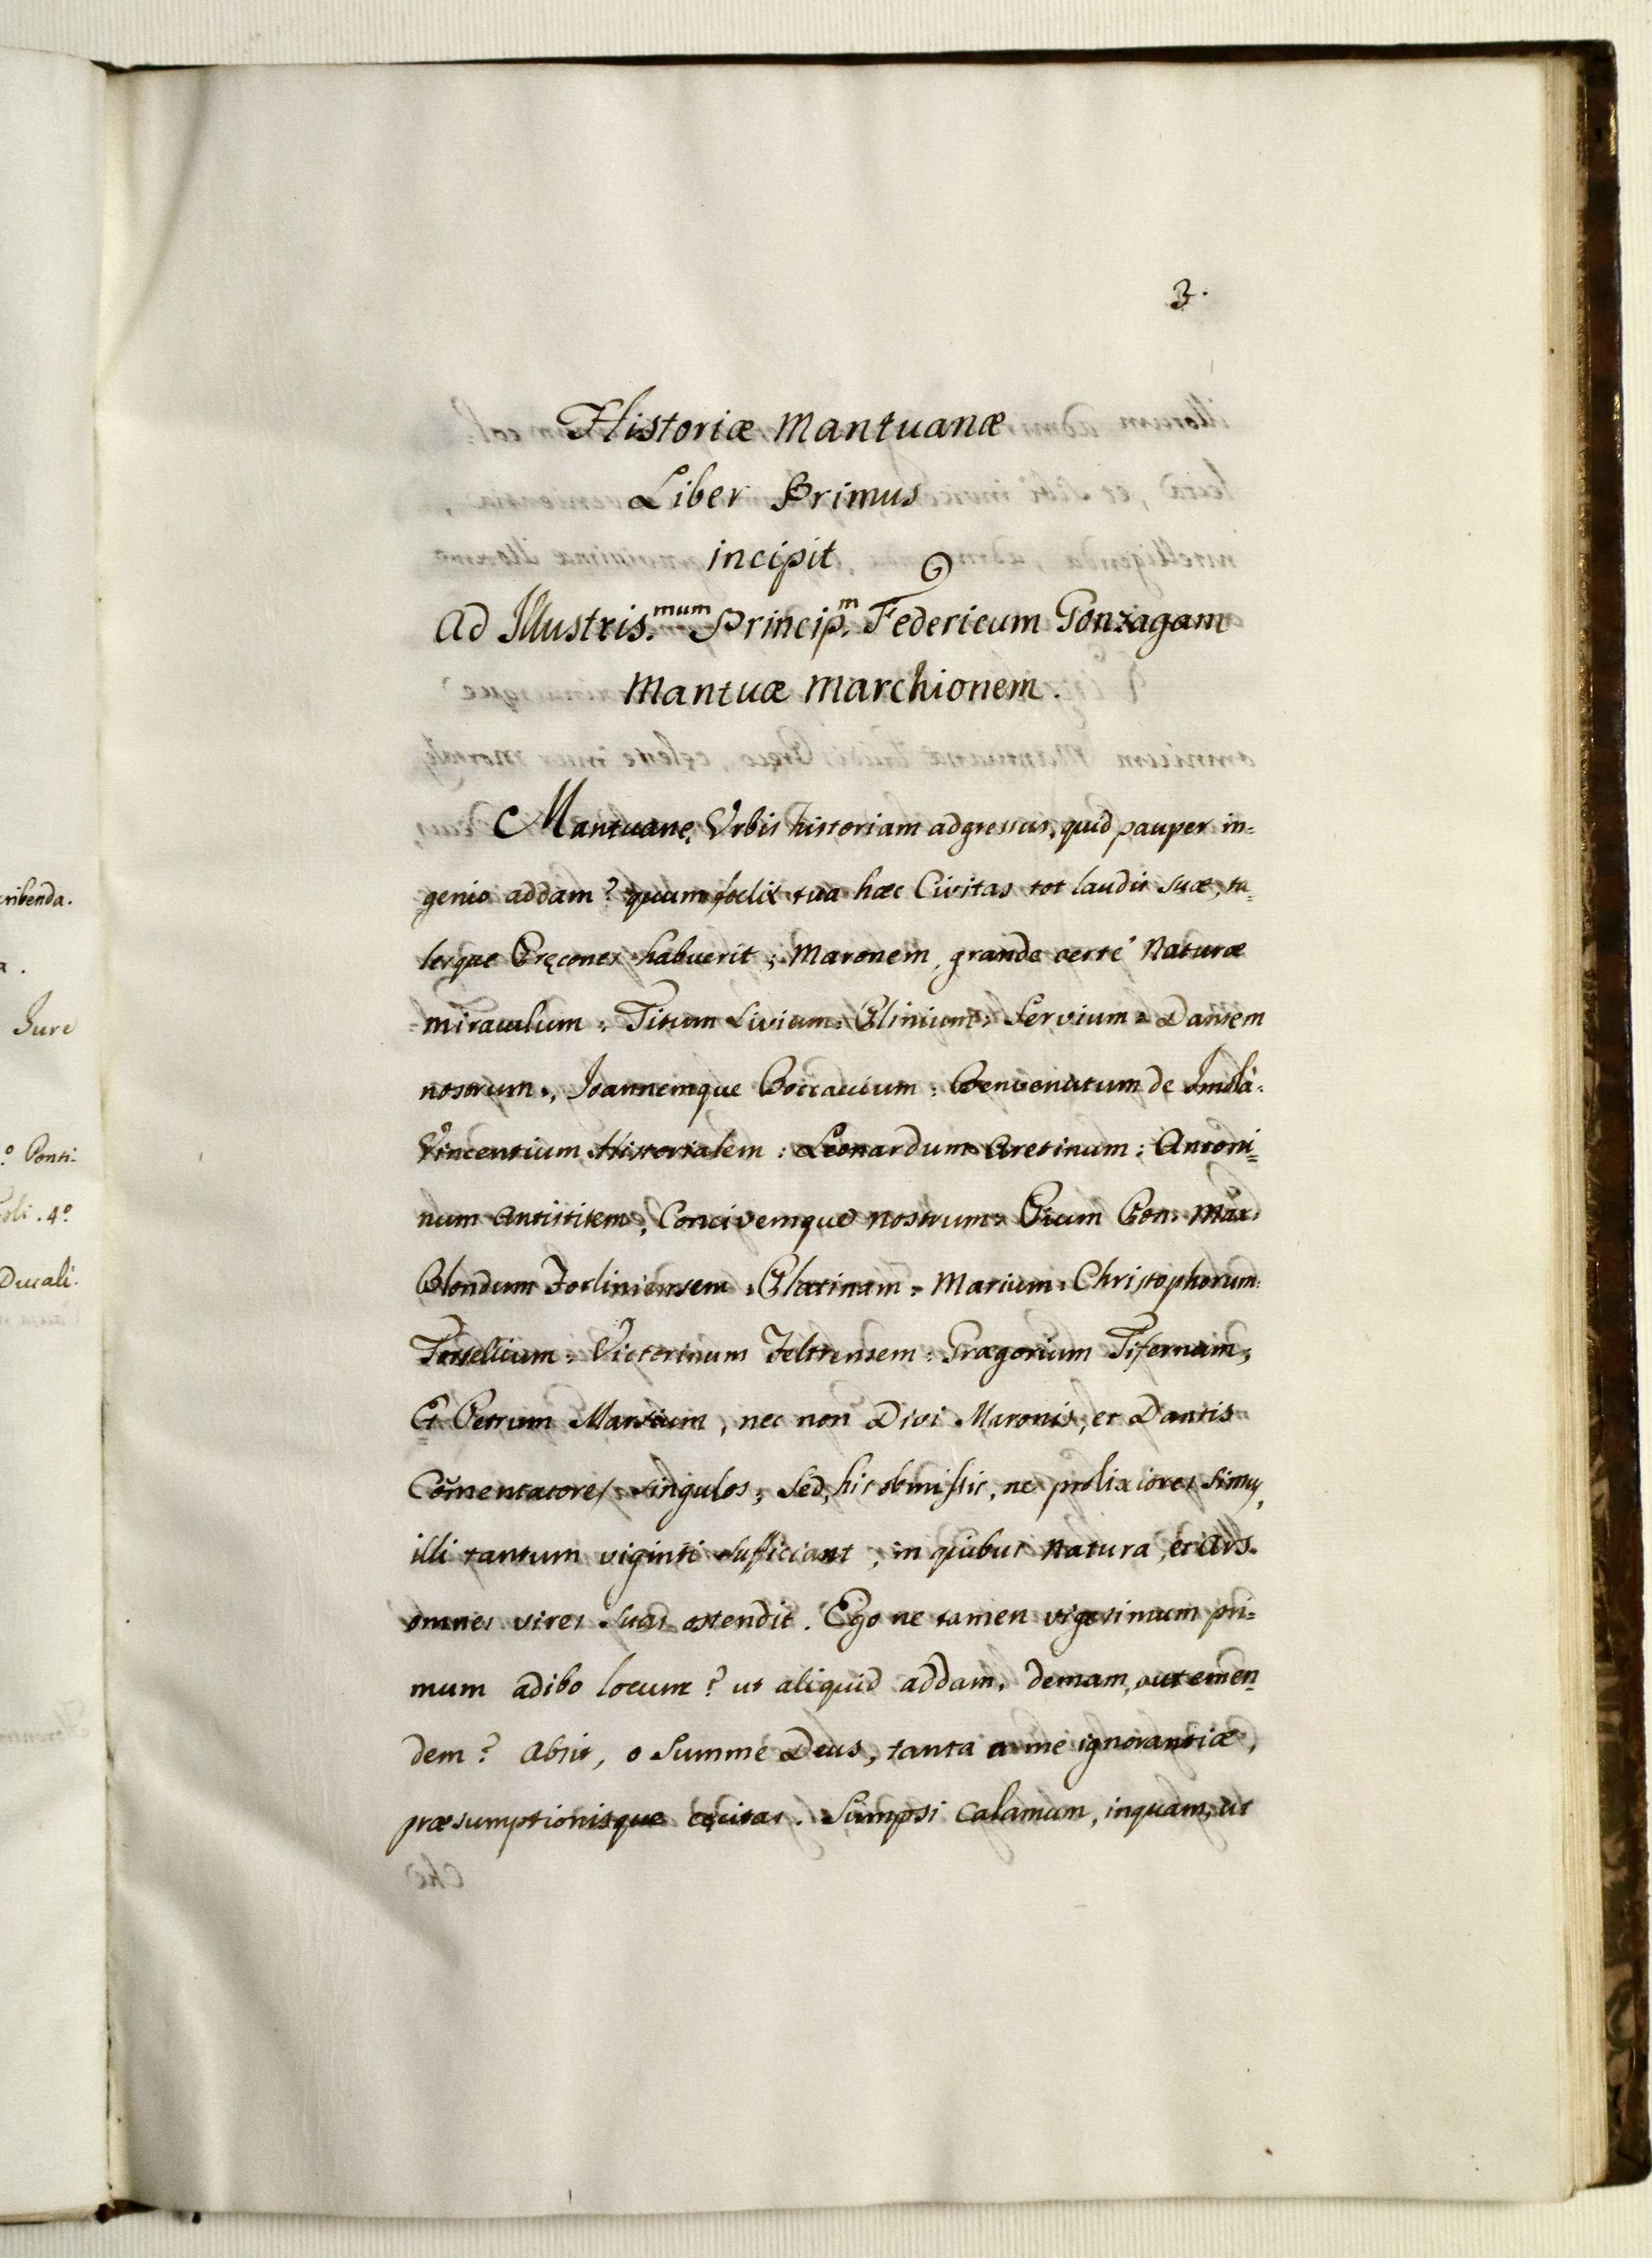 3.
Historiæ Mantuanæ
Liber Primus
incipit
Ad Illustris.mum Princip.m Federicum Gonzagam
Mantuæ Marchionem.
Mantuanę Urbis historiam adgressus, quid pauper in=
genio addam? quam foelix tua hæc Civitas tot laudis suæ, ta=
lesque Pręcones habuerit; Maronem, grande certè Naturæ
miraculum: Titum Livium: Plinium: Servium: Dantem
nostrum, Joannemque Boccaccium: Benvenutum de Imola:
Vincentium Historialem: Leonardum Aretinum: Antoni=
num Antistitem, Concivemque nostrum: Pium Pon: Max:
Blondum Forliniensem: Platinam: Marium: Christophorum:
Victorinum Feltrensem: Græegorium Tifernam;
Et Petrum Marsium, nec non Divi Maronis, et Dantis
Cōmentatores singulos; Sed, his obmissis, ne prolixiores simus,
illi tantum viginti sufficiant, in quibus Natura, et Ars
omnes vires suas ostendit. Ego ne tamen vigesimum pri=
mum adibo locum? ut aliquid addam, demam, aut emen=
dem? Absit, o Summe Deus, tanta a me ignorantiæ,
præsumptionisque cęcitas. Sumpsi Calamum, inquam, ut
cribenda.
a.
Jure
º Ponti:
oli. 4º
Ducali.